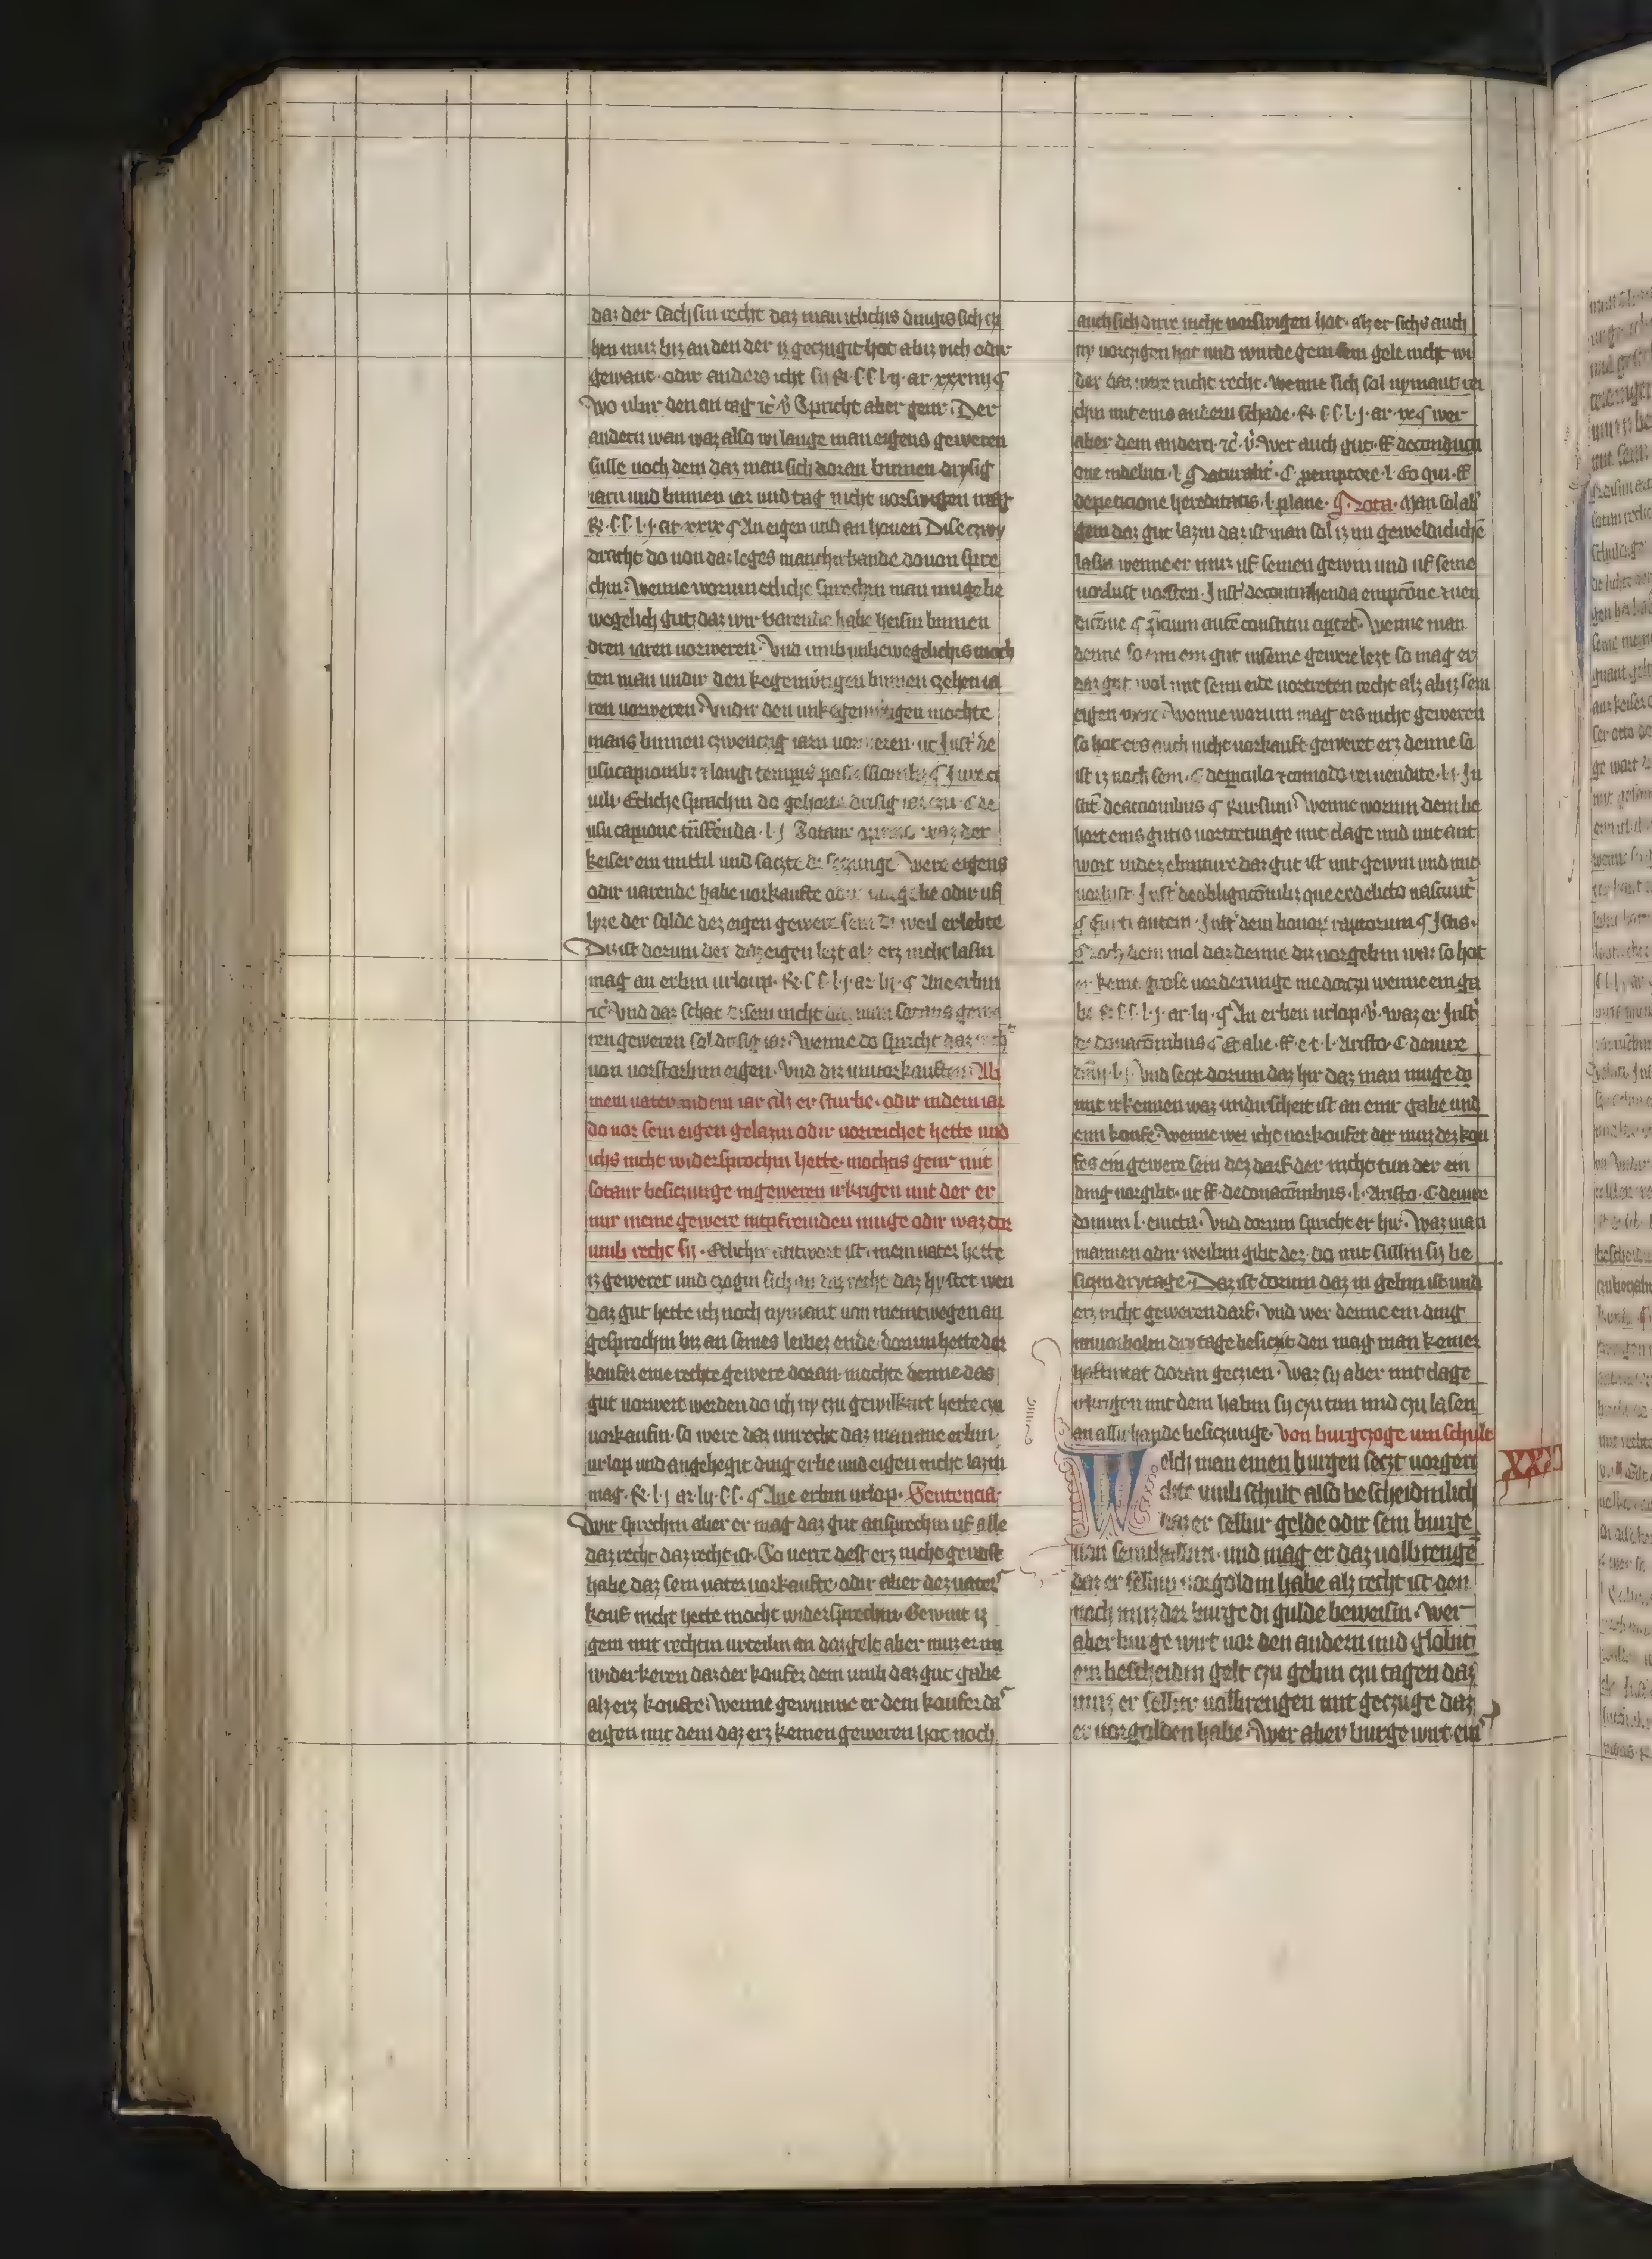 daz der sach sin recht daz man itlichis dingis sich czi
hen muz biz an den der iz geczugit hot abiz vich odir
gewant · odir anders icht sy ꝶ · ſſ l ij · ar · xxxiiij ¶
Wo ubir den an tag ꝛc̄ v̄ Spricht aber genr · Der
andern wan waz also wi lange man eigens geweren
sulle noch dem daz man sich doran binnen drysig
iarn und binnen iar und tag nicht vorswigen mag
ꝶ · ſſ · l · j · ar · xxix ¶ An eigen und an huven Dise czwy
dracht do von daz leges manchirhande do von spre
chin · Wenne worum etliche sprechin man muge be
wegelich gut daz wir varende habe heisin binnen
dren iaren vorweren · Vnd umb unbewegelichis moch
ten man undir den kegemwtigen binnen czehen ia
ren vorweren · Vndir den unkegenwtigen mochte
mans binnen czwenczig iarn vorweren · ut Inst' de
usucapionibz ⁊ longi tempis possessionibz ¶ Jure ci
uili · Etliche sprachin do gehorte drisig iar czu · C de
usucapione tn̄sf'enda · l j
keiser ein mittil und saczte di saczunge Were eigens
odir varende habe vorkaufte odir vorgebe odir uf
lyze der solde dez eigen gewere sein di weil er lebete
Diz ist dorum der daz eigen lezt alz erz nicht lasin
mag an erbin urloup · ꝶ · ſ ſ · l · j · ar · lij · ¶ Ane erbin
ꝛc̄ Vnd daz schat disem nicht daz man
ren geweren sol drisig iar · Wenne do spricht daz
von vorstorbin eigen · Vnd diz vnvorkauften · Ab
mein vater in dem iar alz er sturbe · odir in dem iar
do vor sein eigen gelazin odir vorreichet hette und
ichs nicht widersprochin hette · mochtis genr mit
sotanr besiczunge in geweren irkrigen mit der er
mir meine gewere intpfremden muge odir waz dor
umb recht sy · Etlichir antwort ist · mein vater hette
iz geweret und czogin sich an daz recht daz hy stet wen
daz gut hette ich noch nymant von meintwegen an
gesprochin biz an seines leibez ende · dorum hette der
koufer eine rechte gewere doran · mochte denne das
gut vorwert werden do ich ny czu gewilkurt hette czu
vorkaufin · so were daz unrecht daz man ane erbin
urlop und an gehegit ding erbe und eigen nicht lazin
mag · ꝶ · l · j ar · lij · ſſ · ¶ Ane erbin urlop · Sentencia
Wir sprechin aber er mag daz gut ansprechin uf alle
daz recht daz recht ist · So verre dest erz nicht gewust
habe daz sein vater vorkaufte · odir aber dez vater
kouf nicht hette mocht widersprechin Gewint iz
genr mit rechtin urteiln an daz gelt aber muz er im
widerkeren daz der koufer dem umb daz gut gabe
alz erz koufte · Wenne gewunne er dem koufer da
eigen mit dem daz erz keinen geweren hot noch
auch sich dirre nicht vorswigen hot · alz er sichs auch
ny vorczigen hot und wurde gem sein gelt nicht wi
der daz were nicht recht · wenne sich sol nymant ri
chin mit eins andern schade · ꝶ · ſ ſ · l · j · ar · xx ¶ wer
aber dem andern · ꝛc̄ · v̄ · Wer auch gut · ff de condiccti
one indebiti · l · ¶ Naturalit' · C · pemptore · l · Eo qui · ff
de peticione hereditatis · l · plane · ¶ Nota · Man sol ab'
gem daz gut lazin daz ist man sol iz im geweldiclichē
lasin wenne er muz uf seinen gewin und uf seine
vorlust vorsten · Inst' de contrahenda empcōne ⁊ ven
dicōne ¶ p̄cium autē constitui oportet · Wenne man
denne so eim ein gut in seine gewere lezt so mag er
daz gut wol mit seim eide vortreten recht alz abiz sein
eigen were · Wenne worum mag ers nicht geweren
so hot ers auch nicht vorkauft geweret erz denne so
ist iz noch sein · C de periculo ⁊ comodo rei vendite · l · j · In
stit' de accionibus ¶ Rursum · Wenne worum dem be
hort eins gutis vortretunge mit clage und mit ant
wort
vorlust Inst' de obligacōnibz que ex delicto nascunt'
¶ Furti autem · Inst' de vi bonor̄ raptorum ¶ Ista ·
Noch dem mol daz denne diz vorgebin waz so hot
er keine grose vorderunge me dorczu wenne ein ga
be ꝶ · ſ ſ · l · j · ar · lij · ¶ An erben urlop · v̄ · waz er Inst'
de donacōnibus ¶ Et alie · ff · e · t · l · Aristo · C de iure
Vnd seczt dorum daz hir daz man muge do
mit irkennen waz undirscheit ist an einr gabe und
eim koufe · Wenne wer icht vorkoufet der muz dez kou
fes ein gewere sein dez darf der nicht tun der ein
ding vorgibt · ut ff · de donacōnibus · l · Aristo · C de iure
dotium l · evicta · Vnd dorum spricht er hir · Waz man
mannen odir weibin gibt dez · do mit sullin sy be
siczin dry tage · Daz ist dorum daz in gebin ist und
erz nicht geweren darf · Vnd wer denne ein ding
unvorholin dry tage besiczit den mag man keiner
haftmtat doran geczien · Waz sy aber mit clage
irkrigen mit dem habin sy czu tun und czu lasen
an allir hande besiczunge · Von burgczoge um schult
XXX
Welch man einen burgen seczt vor gen
chte umb schult also bescheidinlich
daz er selbir gelde odir sein burge
von seinthalbin · und mag er daz volbrenge
daz er selbir vorgoldin habe alz recht ist · den
noch muz der burge di gulde beweisin · Wer
aber burge wirt vor den andern und globit
ein bescheidin gelt czu gebin czu tagen daz
muz er selbir volbrengen mit geczuge daz
er vorgolden habe · Wer aber burge wirt ein